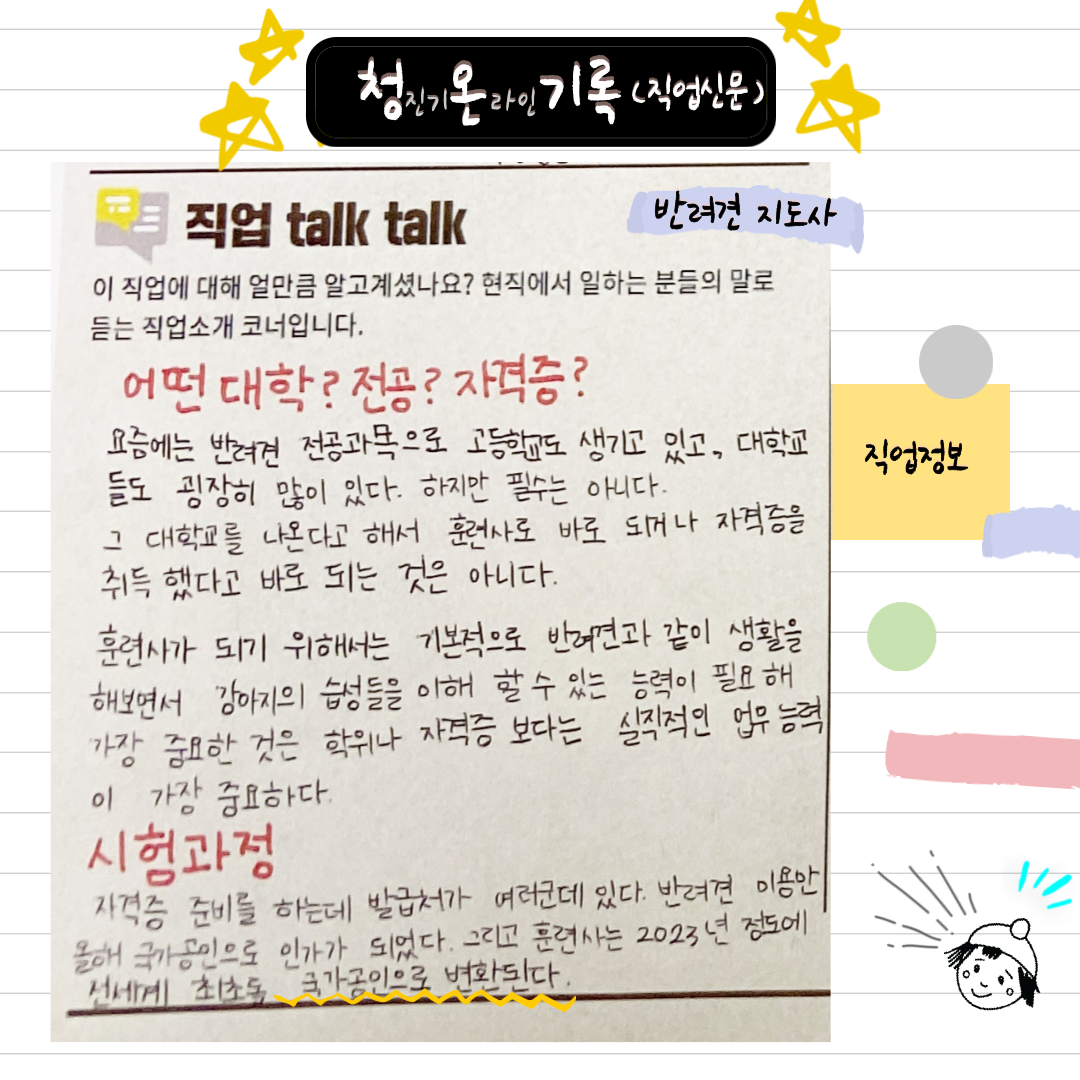 청진기온라인기록(직업신문)
직업 talk talk
반려견 지도사
이 직업에 대해 얼만큼 알고계셨나요? 현직에서 일하는 분들의 말로
듣는 직업소개 코너입니다.
어떤 대학? 전공? 자격증?
요즘에는 반려견 전공과목으로 고등학교도 생기고 있고, 대학교
들도 굉장히 많이 있다. 하지만 필수는 아니다.
그 대학교를 나온다고 해서 훈련사로 바로 되거나 자격증을
취득 했다고 바로 되는 것은 아니다.
훈련사가 되기 위해서는 기본적으로 반려견과 같이 생활을
해보면서 강아지의 습성들을 이해 할 수 있는 능력이 필요해
가장 중요한 것은 학위나 자격증 보다는 실직적인 업무 능력
이 가장 중요하다.
시험과정
자격증 준비를 하는데 발급처가 여러군데 있다. 반려견 미용만
올해 국가공인으로 인가가 되었다. 그리고 훈련사는 2023년 정도에
전세계 최초로 국가공인으로 변환된다.
직업정보